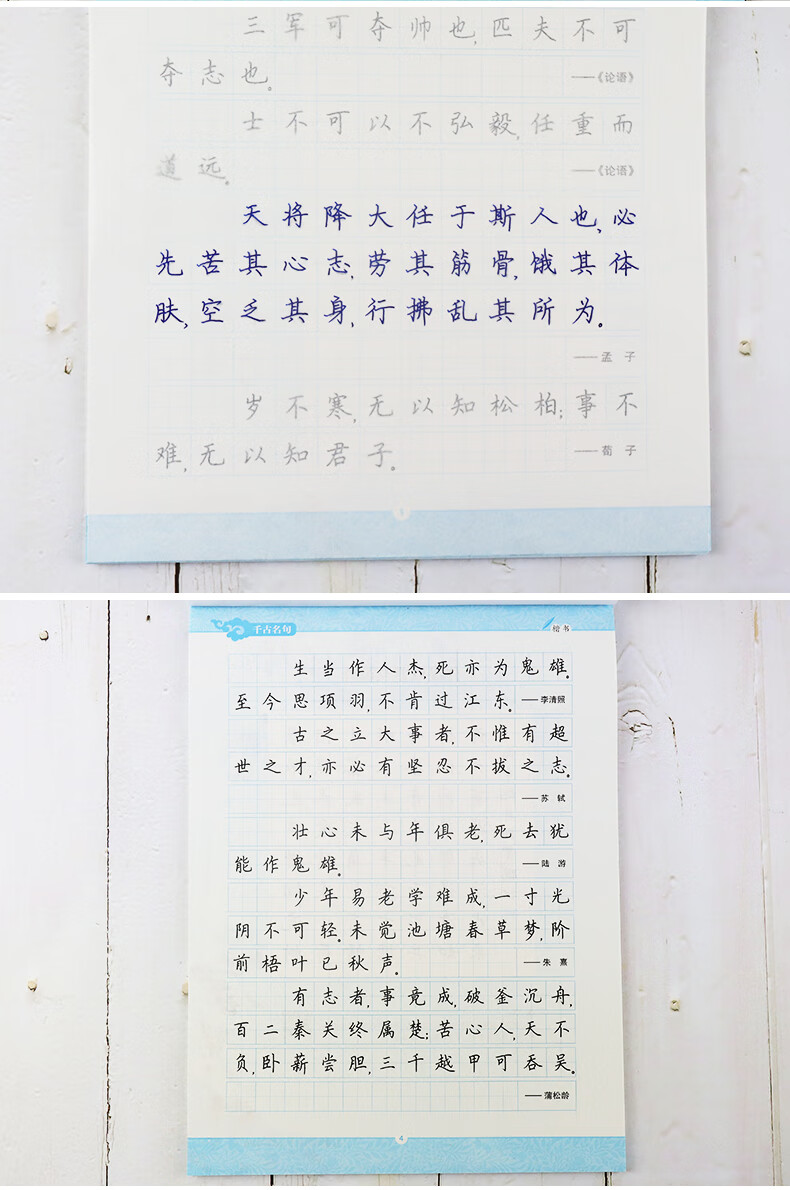 三军可夺帅也,匹夫不可
夺志也。 ——《论语》
士不可以不弘毅,任重而
道远。 ——《论语》
天将降大任于斯人也,必
先苦其心志,劳其筋骨,饿其体
肤,空乏其身,行拂乱其所为。
——孟 子
岁不寒,无以知松柏;事不
难,无以知君子。 ——荀 子
千古名句 楷书
生当作人杰,死亦为鬼雄。
至今思项羽,不肯过江东。 ——李清照
古之立大事者,不惟有超
世之才,亦必有坚忍不拔之志。
——苏 轼
壮心未与年俱老,死去犹
能作鬼雄。 ——陆 游
少年易老学难成,一寸光
阴不可轻。未觉池塘春草梦,阶
前梧叶已秋声。 ——朱 熹
有志者,事竟成,破釜沉舟,
百二秦关终属楚;苦心人,天不
负,卧薪尝胆,三千越甲可吞吴。
——蒲松龄
4